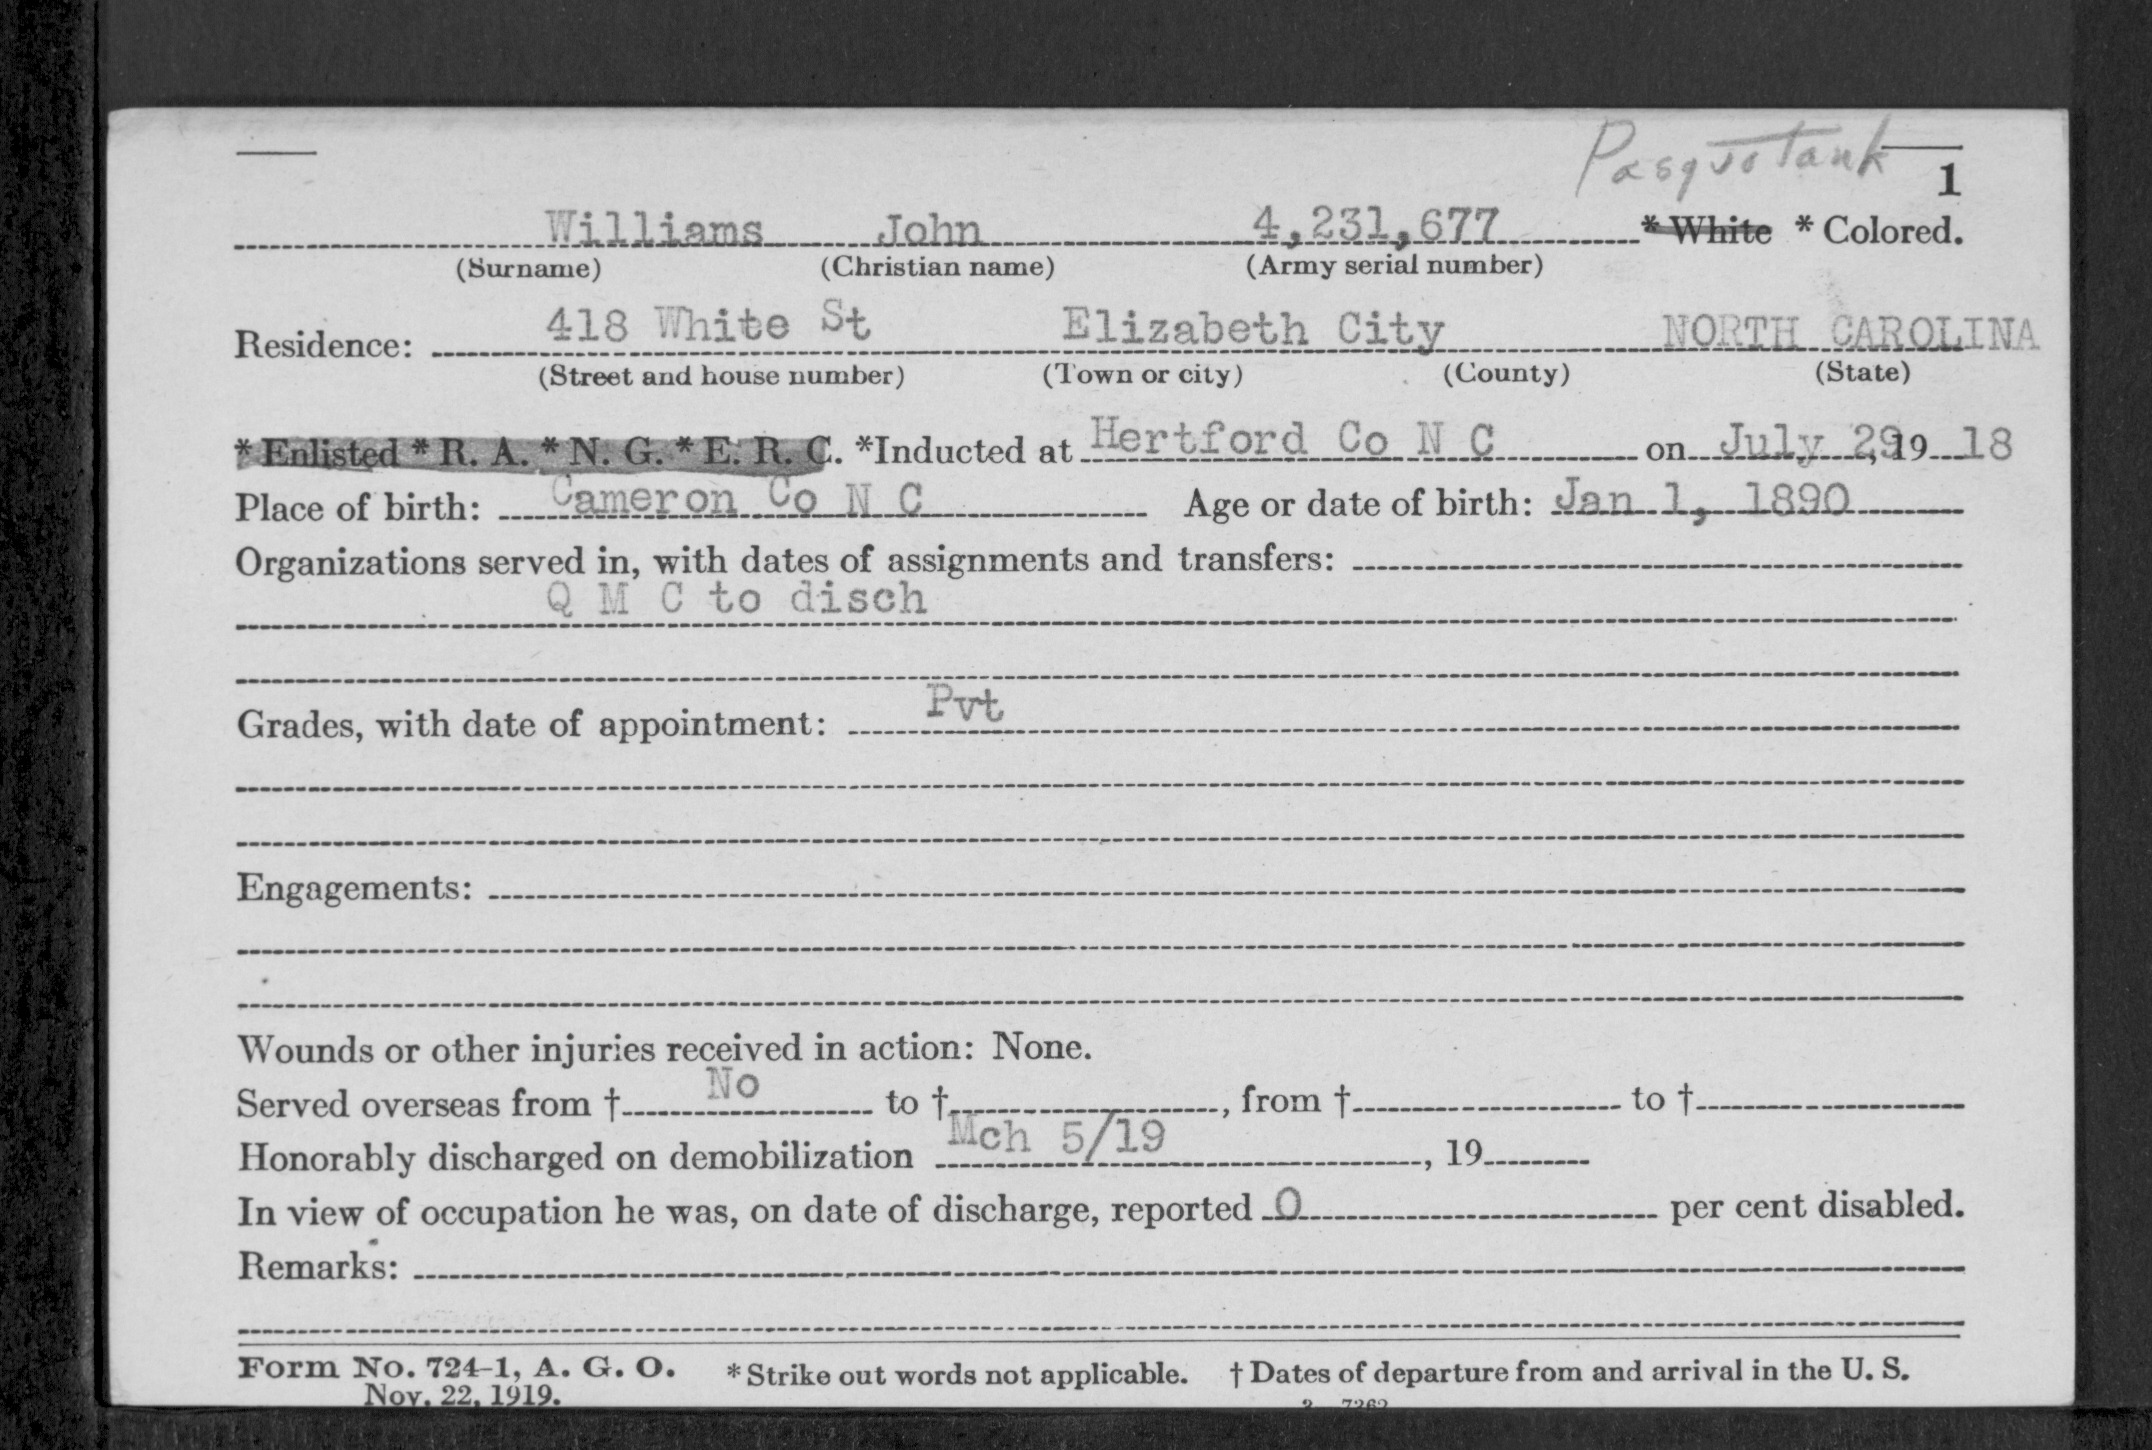 Pasquotank
1
Williams John 4,231,677 * White * Colored.
(Surname) (Christian name) (Army serial number)
Residence: 418 White St Elizabeth City NORTH CAROLINA
(Street and house number) (Town or city) (County) (State)
* Enlisted * R. A. * N. G. * E. R. C. *Inducted at Hertford Co N C on July 29, 19 18
Place of birth: Cameron Co N C Age or date of birth: Jan 1, 1890
Organizations served in, with dates of assignments and transfers:
Q M C to disch
Grades, with date of appointment: Pvt
Engagements:
Wounds or other injuries received in action: None.
Served overseas from † No to †, from † to †
Honorably discharged on demobilization Mch 5/19, 19
In view of occupation he was, on date of discharge, reported 0 per cent disabled.
Remarks:
Form No. 724-1, A. G. O. * Strike out words not applicable. † Dates of departure from and arrival in the U. S.
Nov. 22, 1919.